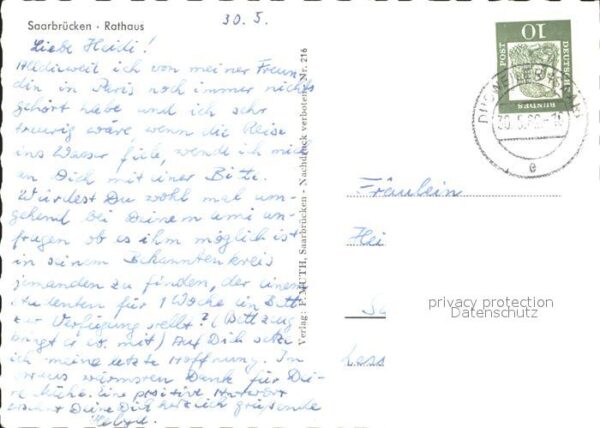 30. 5.
Saarbrücken · Rathaus
Liebe Heidi!
Alldieweil ich von meiner Freun-
din in Paris noch immer nichts
gehört habe und ich sehr
traurig wäre wenn die Reise
ins Wasser fiele, wende ich mich
an Dich mit einer Bitte.
Würdest Du wohl mal um-
gehend bei Deinem ami an-
fragen ob es ihm möglich ist
in seinem Bekanntenkreis
jemanden zu finden, der einem
Studenten für 1 Woche ein Bett
zur Verfügung stellt? (Bettzeug
bringt er ev. mit) Auf Dich setze
ich meine letzte Hoffnung. Im
voraus wärmsten Dank für Dei-
ne Mühe. Eine positive Antwort
Deine Dich herzlich grüßende
Verlag: P. MUTH, Saarbrücken - Nachdruck verboten - Nr. 216
10
DEUTSCHE
BUNDES
POST
30.5.
e
Fräulein
Hei
Sa
privacy protection
Datenschutz